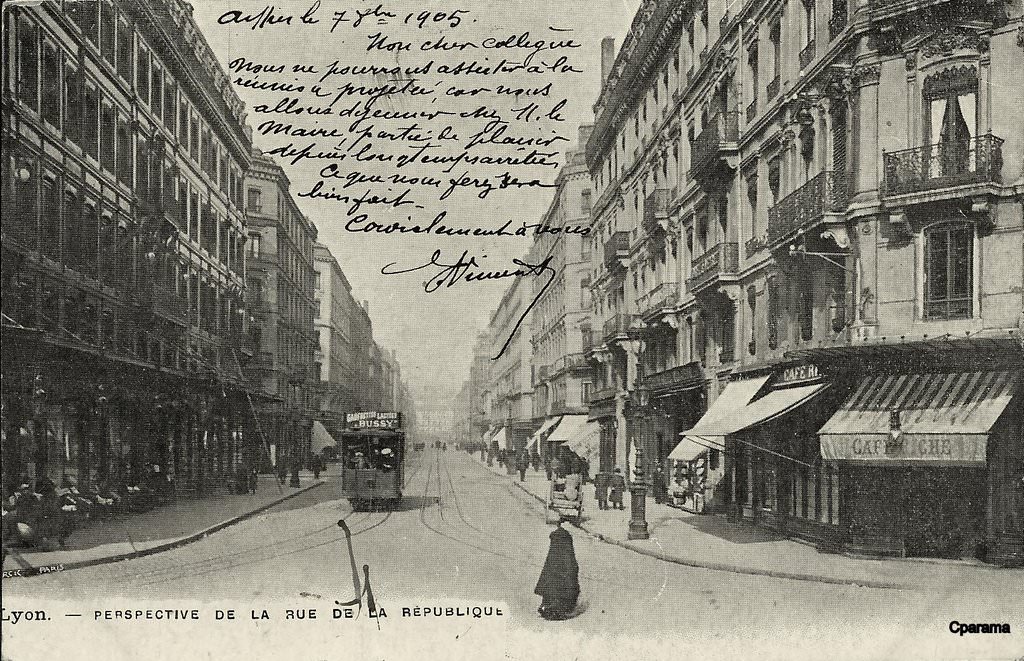 le 7 xbre 1905.
Mon cher collègue
nous ne pourrons assister à la
projetée, car nous
allons déjeuner chez M. le
Maire, partie de plaisir
depuis longtemps arrêtée,
Ce que vous ferez sera
bien fait.
Cordialement à vous
Vincent
CAFÉ RI
BUSSY
CAFÉ RICHE
PARIS
Lyon. — PERSPECTIVE DE LA RUE DE LA RÉPUBLIQUE
Cparama